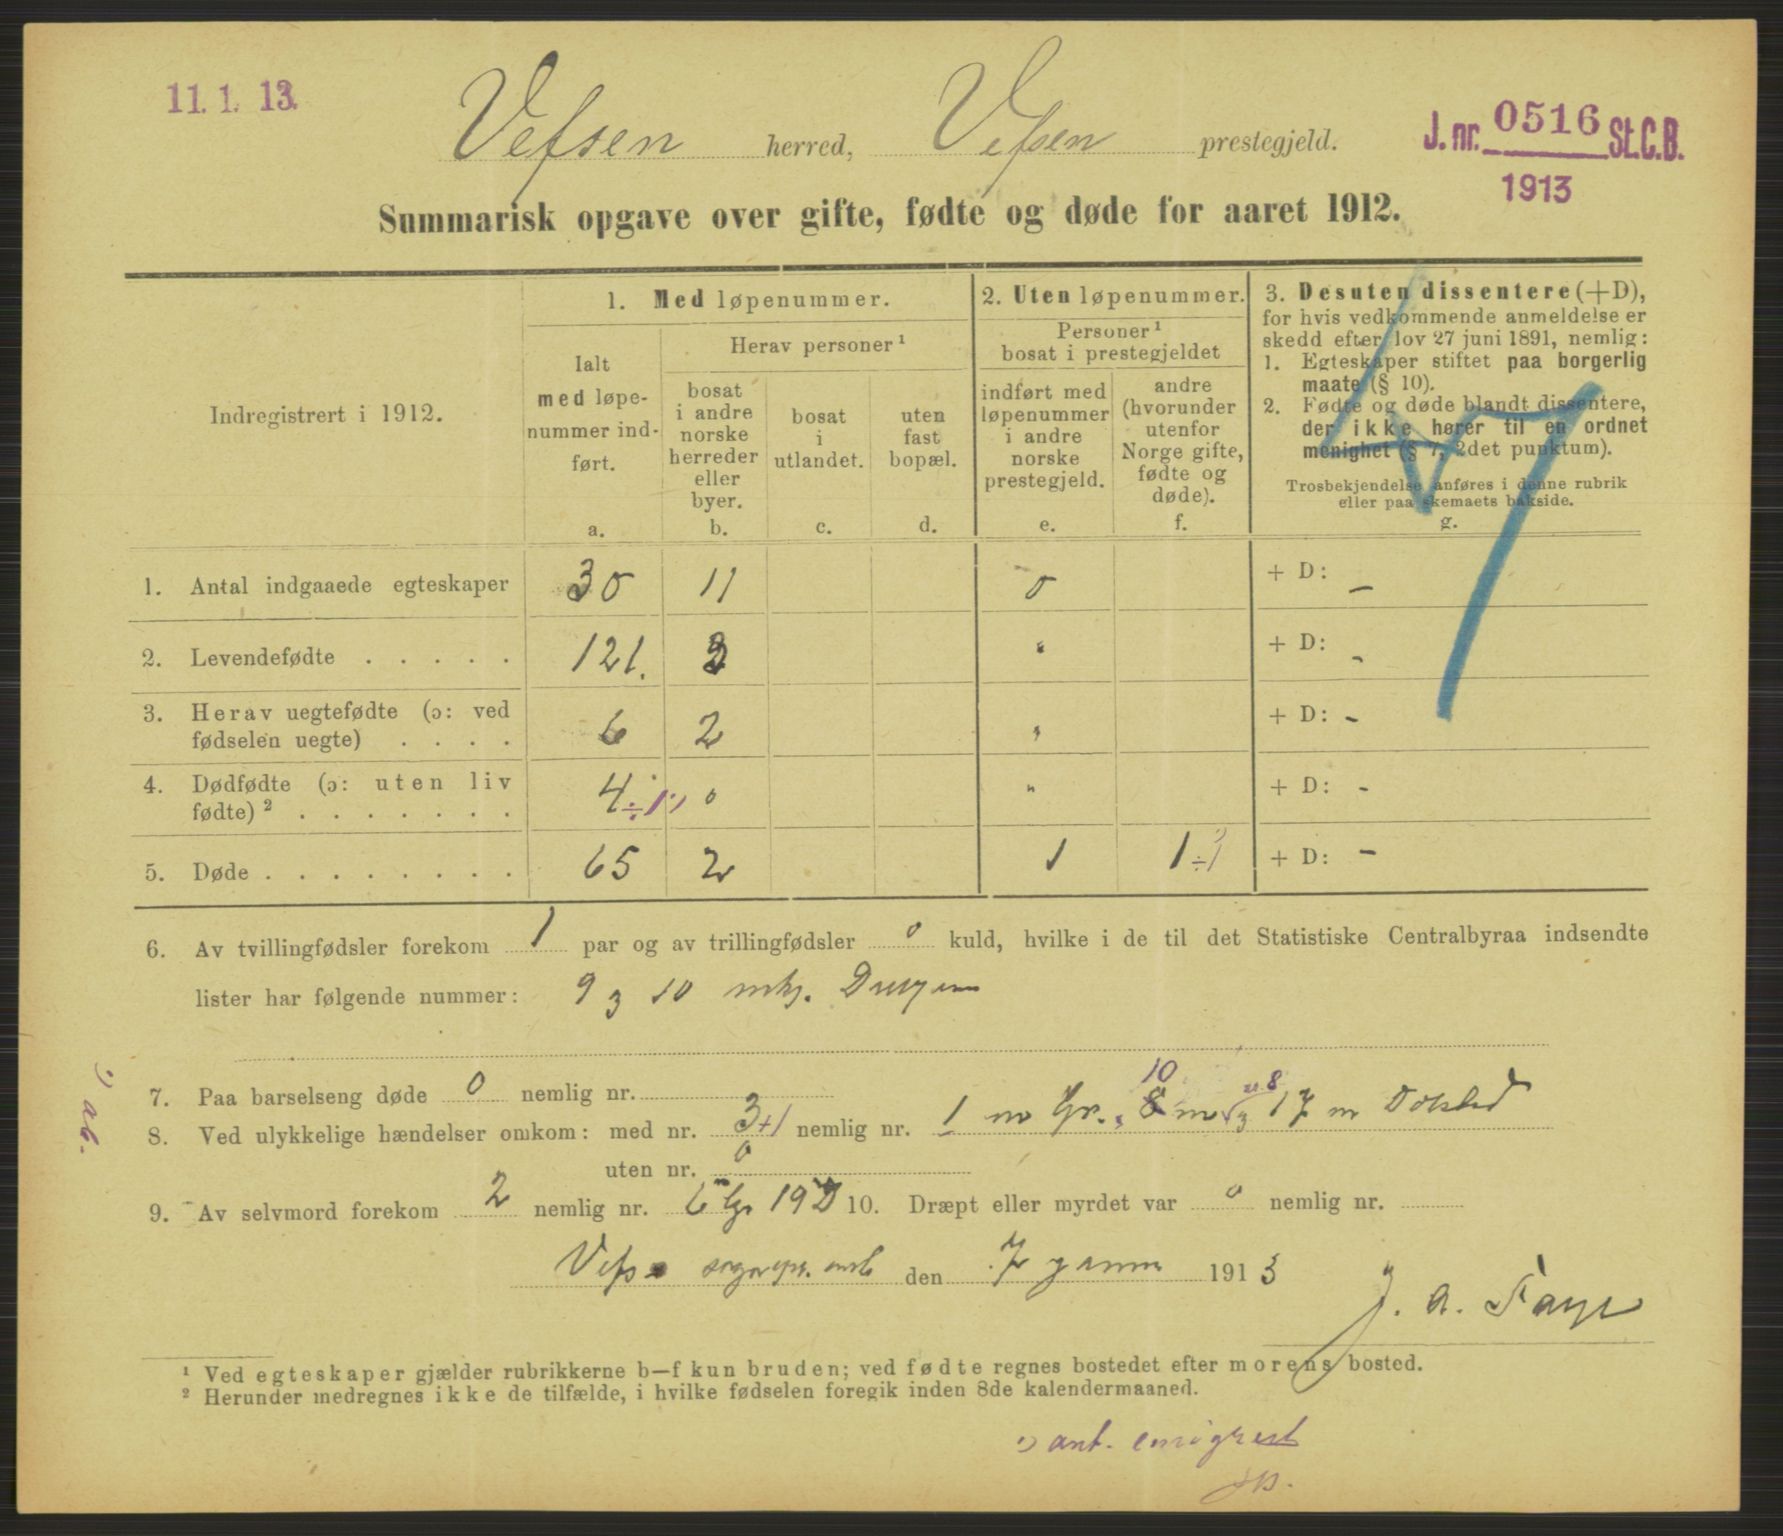 11. 1. 13.
Vefsen herred, Vefsen prestegjeld.
J. nr. 0516 St. C. B.
1913
Summarisk opgave over gifte, fødte og døde for aaret 1912.
Indregistrert i 1912.
1. Med løpenummer.
Ialt med løpe-nummer ind-ført.
a.
Herav personer ¹
bosat i andre norske herreder eller byer.
b.
bosat i utlandet.
c.
uten fast bopæl.
d.
2. Uten løpenummer.
Personer ¹ bosat i prestegjeldet
indført med løpenummer i andre norske prestegjeld.
e.
andre (hvorunder utenfor Norge gifte, fødte og døde).
f.
3. Desuten dissentere (+D),
for hvis vedkommende anmeldelse er
skedd efter lov 27 juni 1891, nemlig:
1. Egteskaper stiftet paa borgerlig
maate (§ 10).
2. Fødte og døde blandt dissentere,
der ikke hører til en ordnet
menighet (§ 7, 2det punktum).
Trosbekjendelse anføres i denne rubrik
eller paa skemaets bakside.
g.
1. Antal indgaaede egteskaper 30 11 0 + D: –
2. Levendefødte . . . . . 121. 3 " + D: –
3. Herav uegtefødte (ɔ: ved
fødselen uegte) . . . . 6 2 " + D: –
4. Dødfødte (ɔ: uten liv
fødte) ² . . . . . . . 4 ÷1 ¹) 0 " + D: –
5. Døde . . . . . . . . 65 2 1 1 ÷1 + D: –
6. Av tvillingfødsler forekom 1 par og av trillingfødsler 0 kuld, hvilke i de til det Statistiske Centralbyraa indsendte
lister har følgende nummer: 9 & 10 mkj.
7. Paa barselseng døde 0 nemlig nr.
10 8
8. Ved ulykkelige hændelser omkom: med nr. 3 +1 nemlig nr. 1 m 8 m & 17 m
uten nr. 0
9. Av selvmord forekom 2 nemlig nr. 6 19 10. Dræpt eller myrdet var 0 nemlig nr.
den 7 1913
J. A.
¹ Ved egteskaper gjælder rubrikkerne b—f kun bruden; ved fødte regnes bostedet efter morens bosted.
² Herunder medregnes ikke de tilfælde, i hvilke fødselen foregik inden 8de kalendermaaned.
¹) ant. emigrert